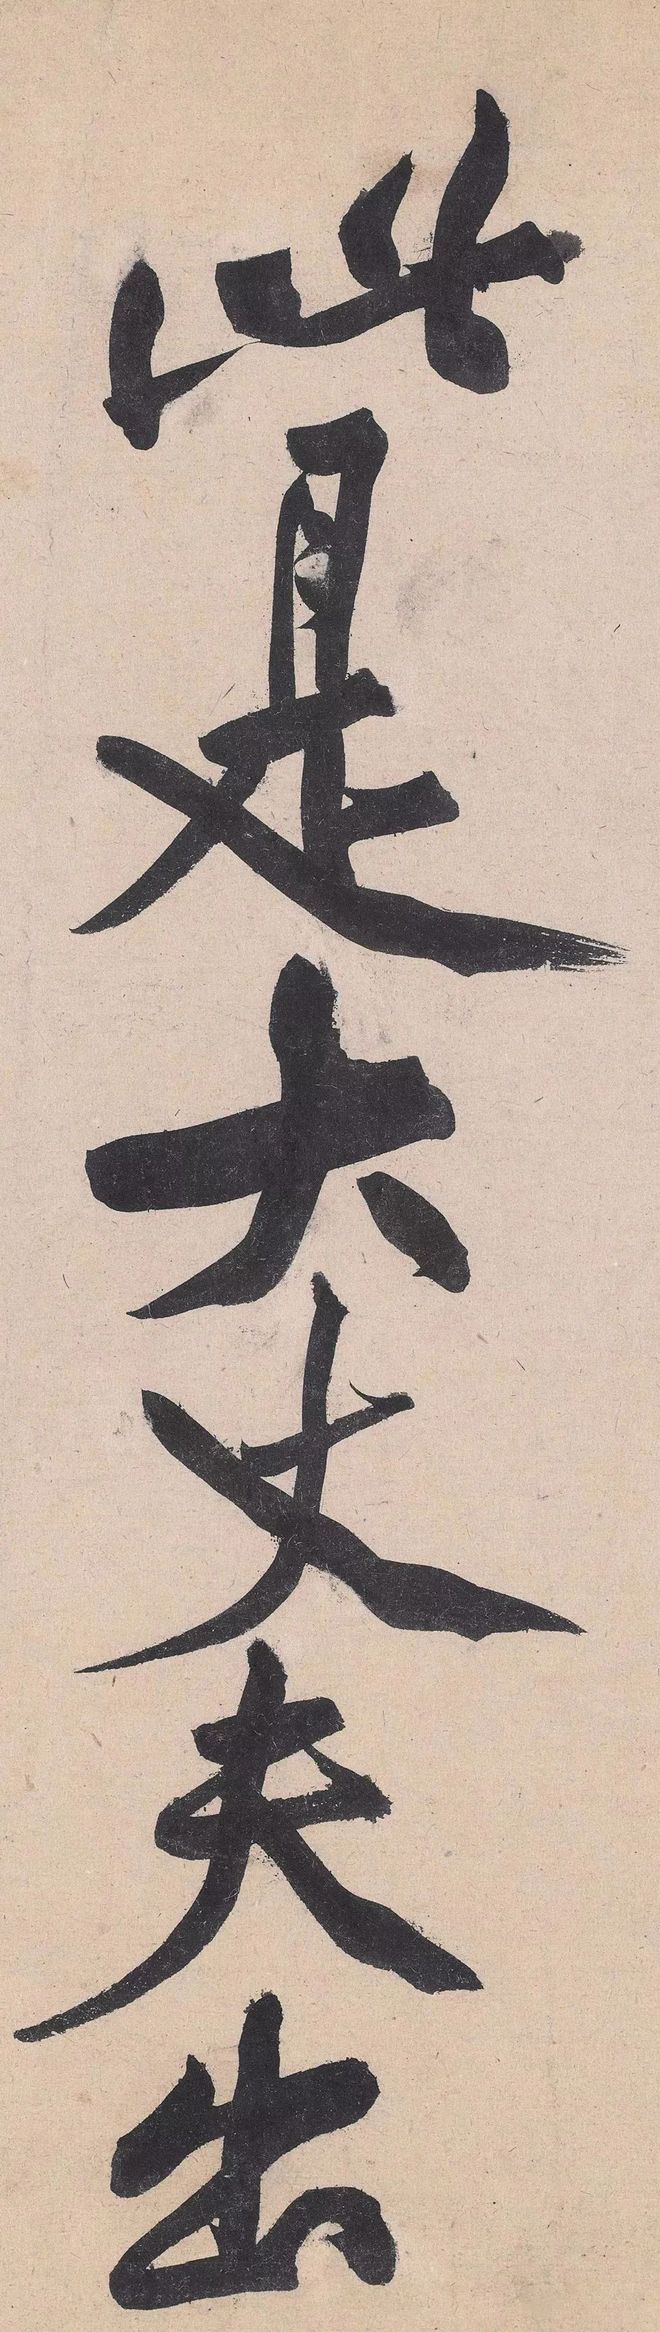 此是大丈夫出